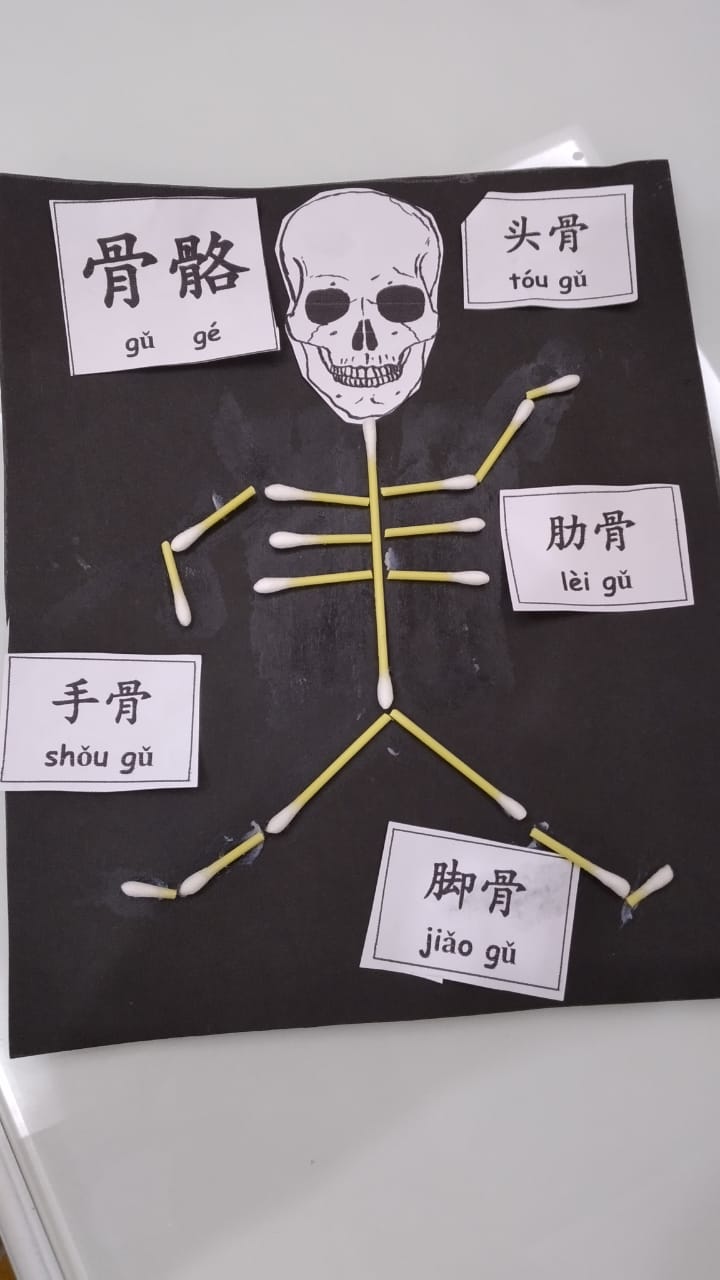 骨骼
gǔ gé
头骨
tóu gǔ
肋骨
lèi gǔ
手骨
shǒu gǔ
脚骨
jiǎo gǔ